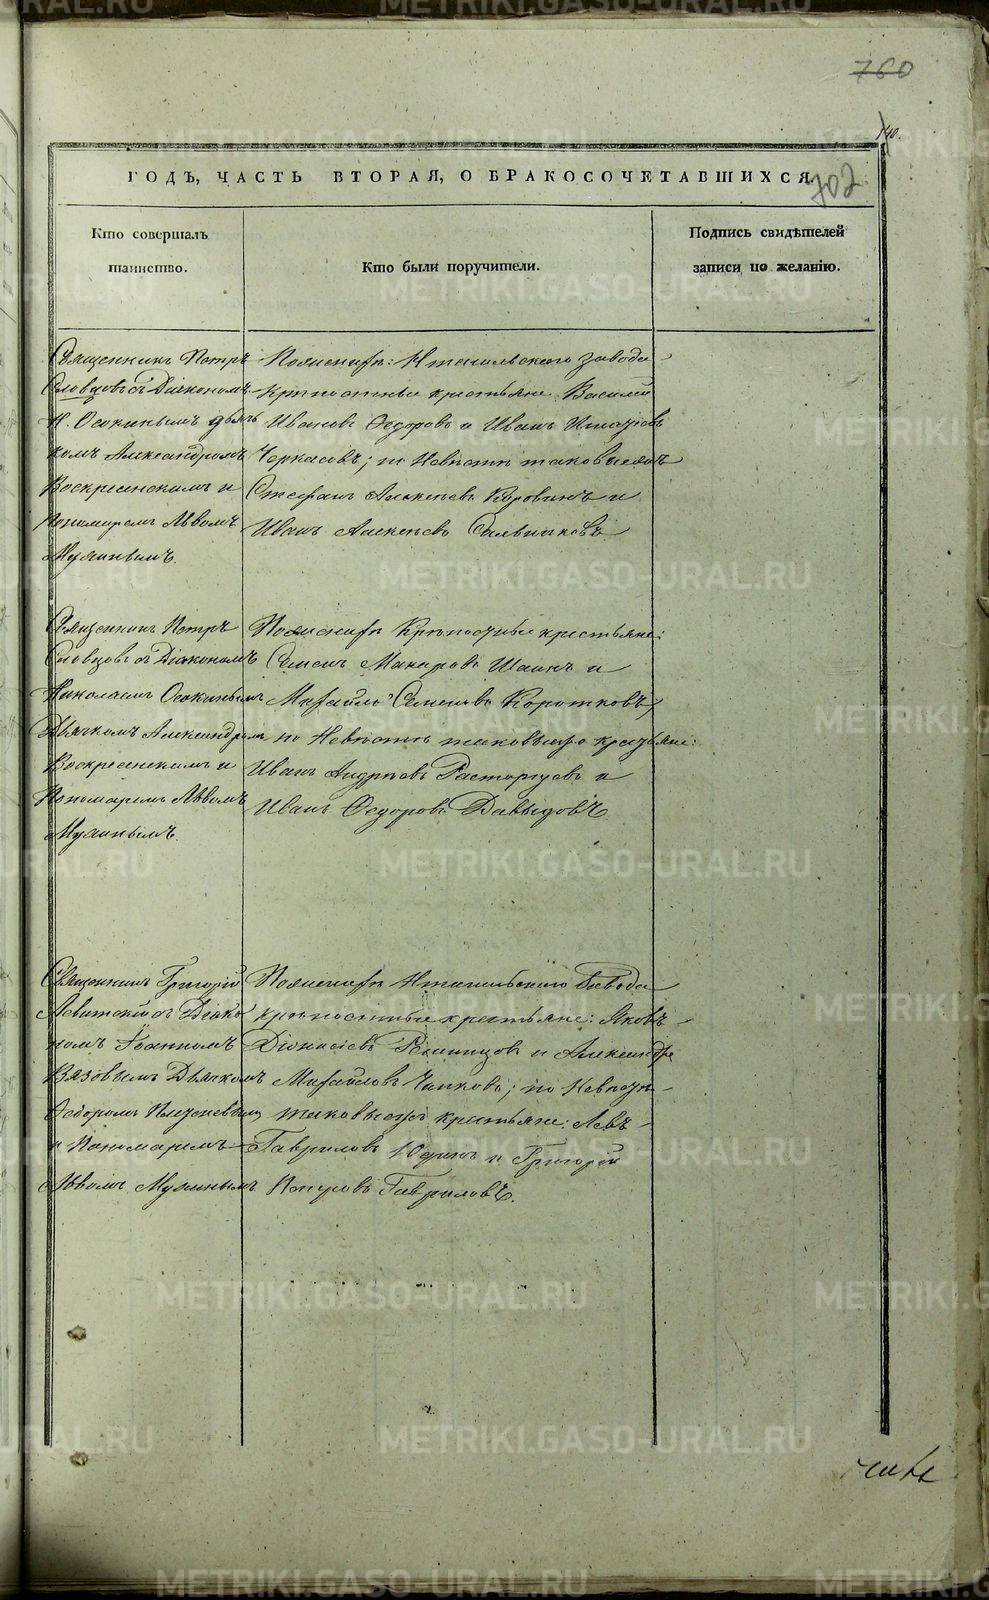 760
140.
ГОДЪ, ЧАСТЬ ВТОРАЯ, О БРАКОСОЧЕТАВШИХСЯ.
702
Кто совершалъ
таинство.
Кто были поручители.
Подпись свидѣтелей
записи по желанію.
Священникъ Петръ
Словцовъ съ Діакономъ
Н. Осокинымъ дьяч
комъ Александромъ
Воскресенскимъ и
пономаремъ Львомъ
Мухинымъ.
По женихѣ: Нтагильскаго завода
крѣпостные крестьяне Василій
Ивановъ Ѳедоровъ и Иванъ Игнатіевъ
Черкасовъ; по Невѣстѣ таковыежъ
Стефанъ Алексѣевъ Коровинъ и
Иванъ Алексѣевъ
Священникъ Петръ
Словцовъ съ Діакономъ
Николаемъ Осокинымъ
Дьячкомъ Александромъ
Воскресенскимъ и
Пономаремъ Львомъ
Мухинымъ.
По женихѣ Крѣпостные крестьяне:
Семенъ Макаровъ и
Михайлъ Семеновъ Коротковъ;
по Невѣстѣ таковыежъ крестьяне:
Иванъ Андреевъ Расторгуевъ и
Иванъ Ѳедоровъ Давыдовъ
Священникъ Григорій
Левитскій съ Діако
номъ Іоанномъ
Вязовымъ Дьячкомъ
Ѳедоромъ
и Пономаремъ
Львомъ Мухинымъ
По женихѣ Нтагильскаго Завода
крѣпостные крестьяне: Яковъ
Діонисіевъ и Александръ
Михайловъ; по Невѣстѣ
таковыежъ крестьяне: Левъ
Гавриловъ Юдинъ и Григорій
Петровъ Гавриловъ.
METRIKI.GASO-URAL.RU